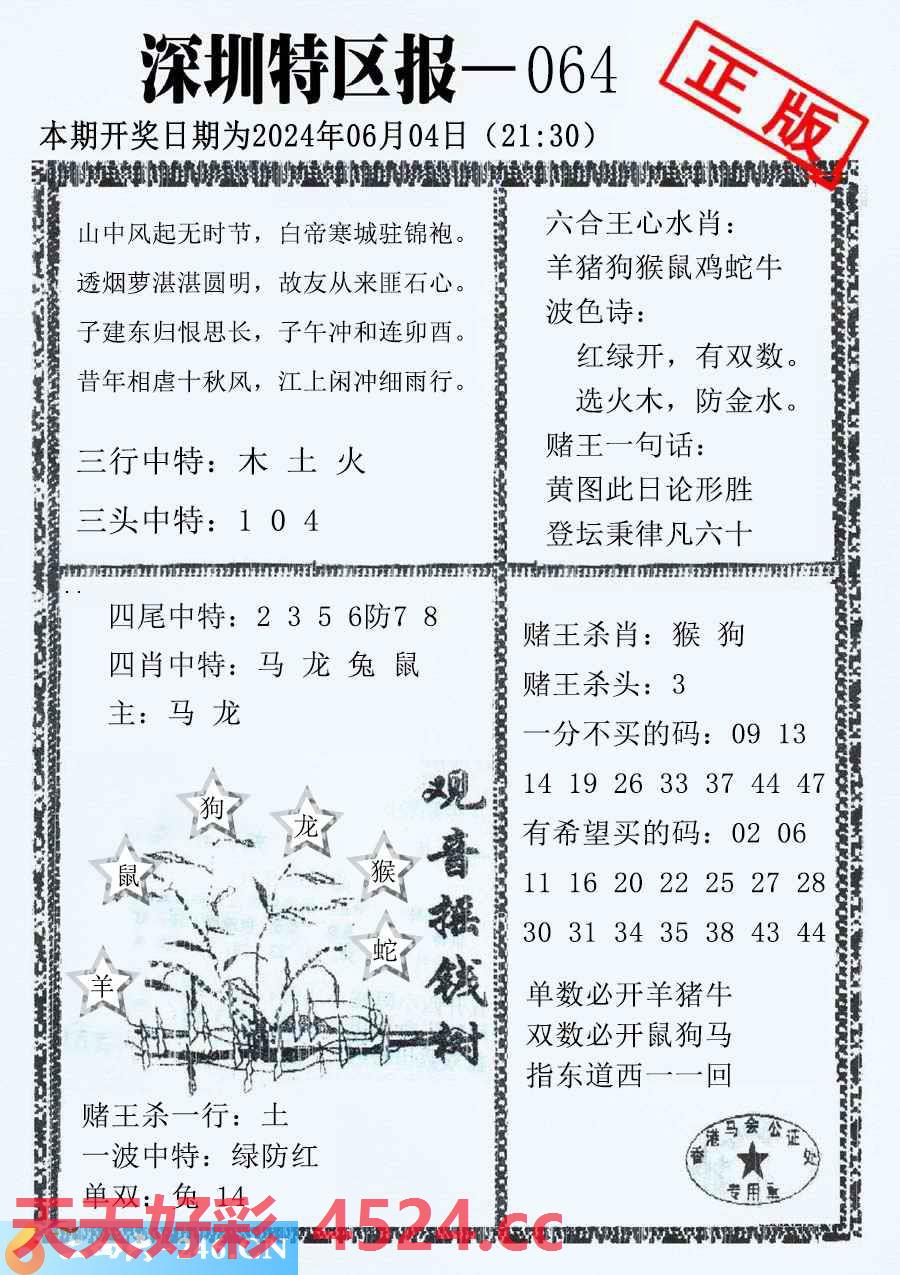 深圳特区报－064
正版
本期开奖日期为2024年06月04日（21:30）
山中风起无时节，白帝寒城驻锦袍。
透烟萝湛湛圆明，故友从来匪石心。
子建东归恨思长，子午冲和连卯酉。
昔年相虐十秋风，江上闲冲细雨行。
三行中特：木 土 火
三头中特：1 0 4
六合王心水肖：
羊猪狗猴鼠鸡蛇牛
波色诗：
红绿开，有双数。
选火木，防金水。
赌王一句话：
黄图此日论形胜
登坛秉律凡六十
四尾中特：2 3 5 6防7 8
四肖中特：马 龙 兔 鼠
主：马 龙
狗
龙
鼠
猴
蛇
羊
观音摇钱树
赌王杀一行：土
一波中特：绿防红
单双：兔 14
赌王杀肖：猴 狗
赌王杀头：3
一分不买的码：09 13
14 19 26 33 37 44 47
有希望买的码：02 06
11 16 20 22 25 27 28
30 31 34 35 38 43 44
单数必开羊猪牛
双数必开鼠狗马
指东道西一一回
香港马会公证处
专用章
天天好彩 4524.cc